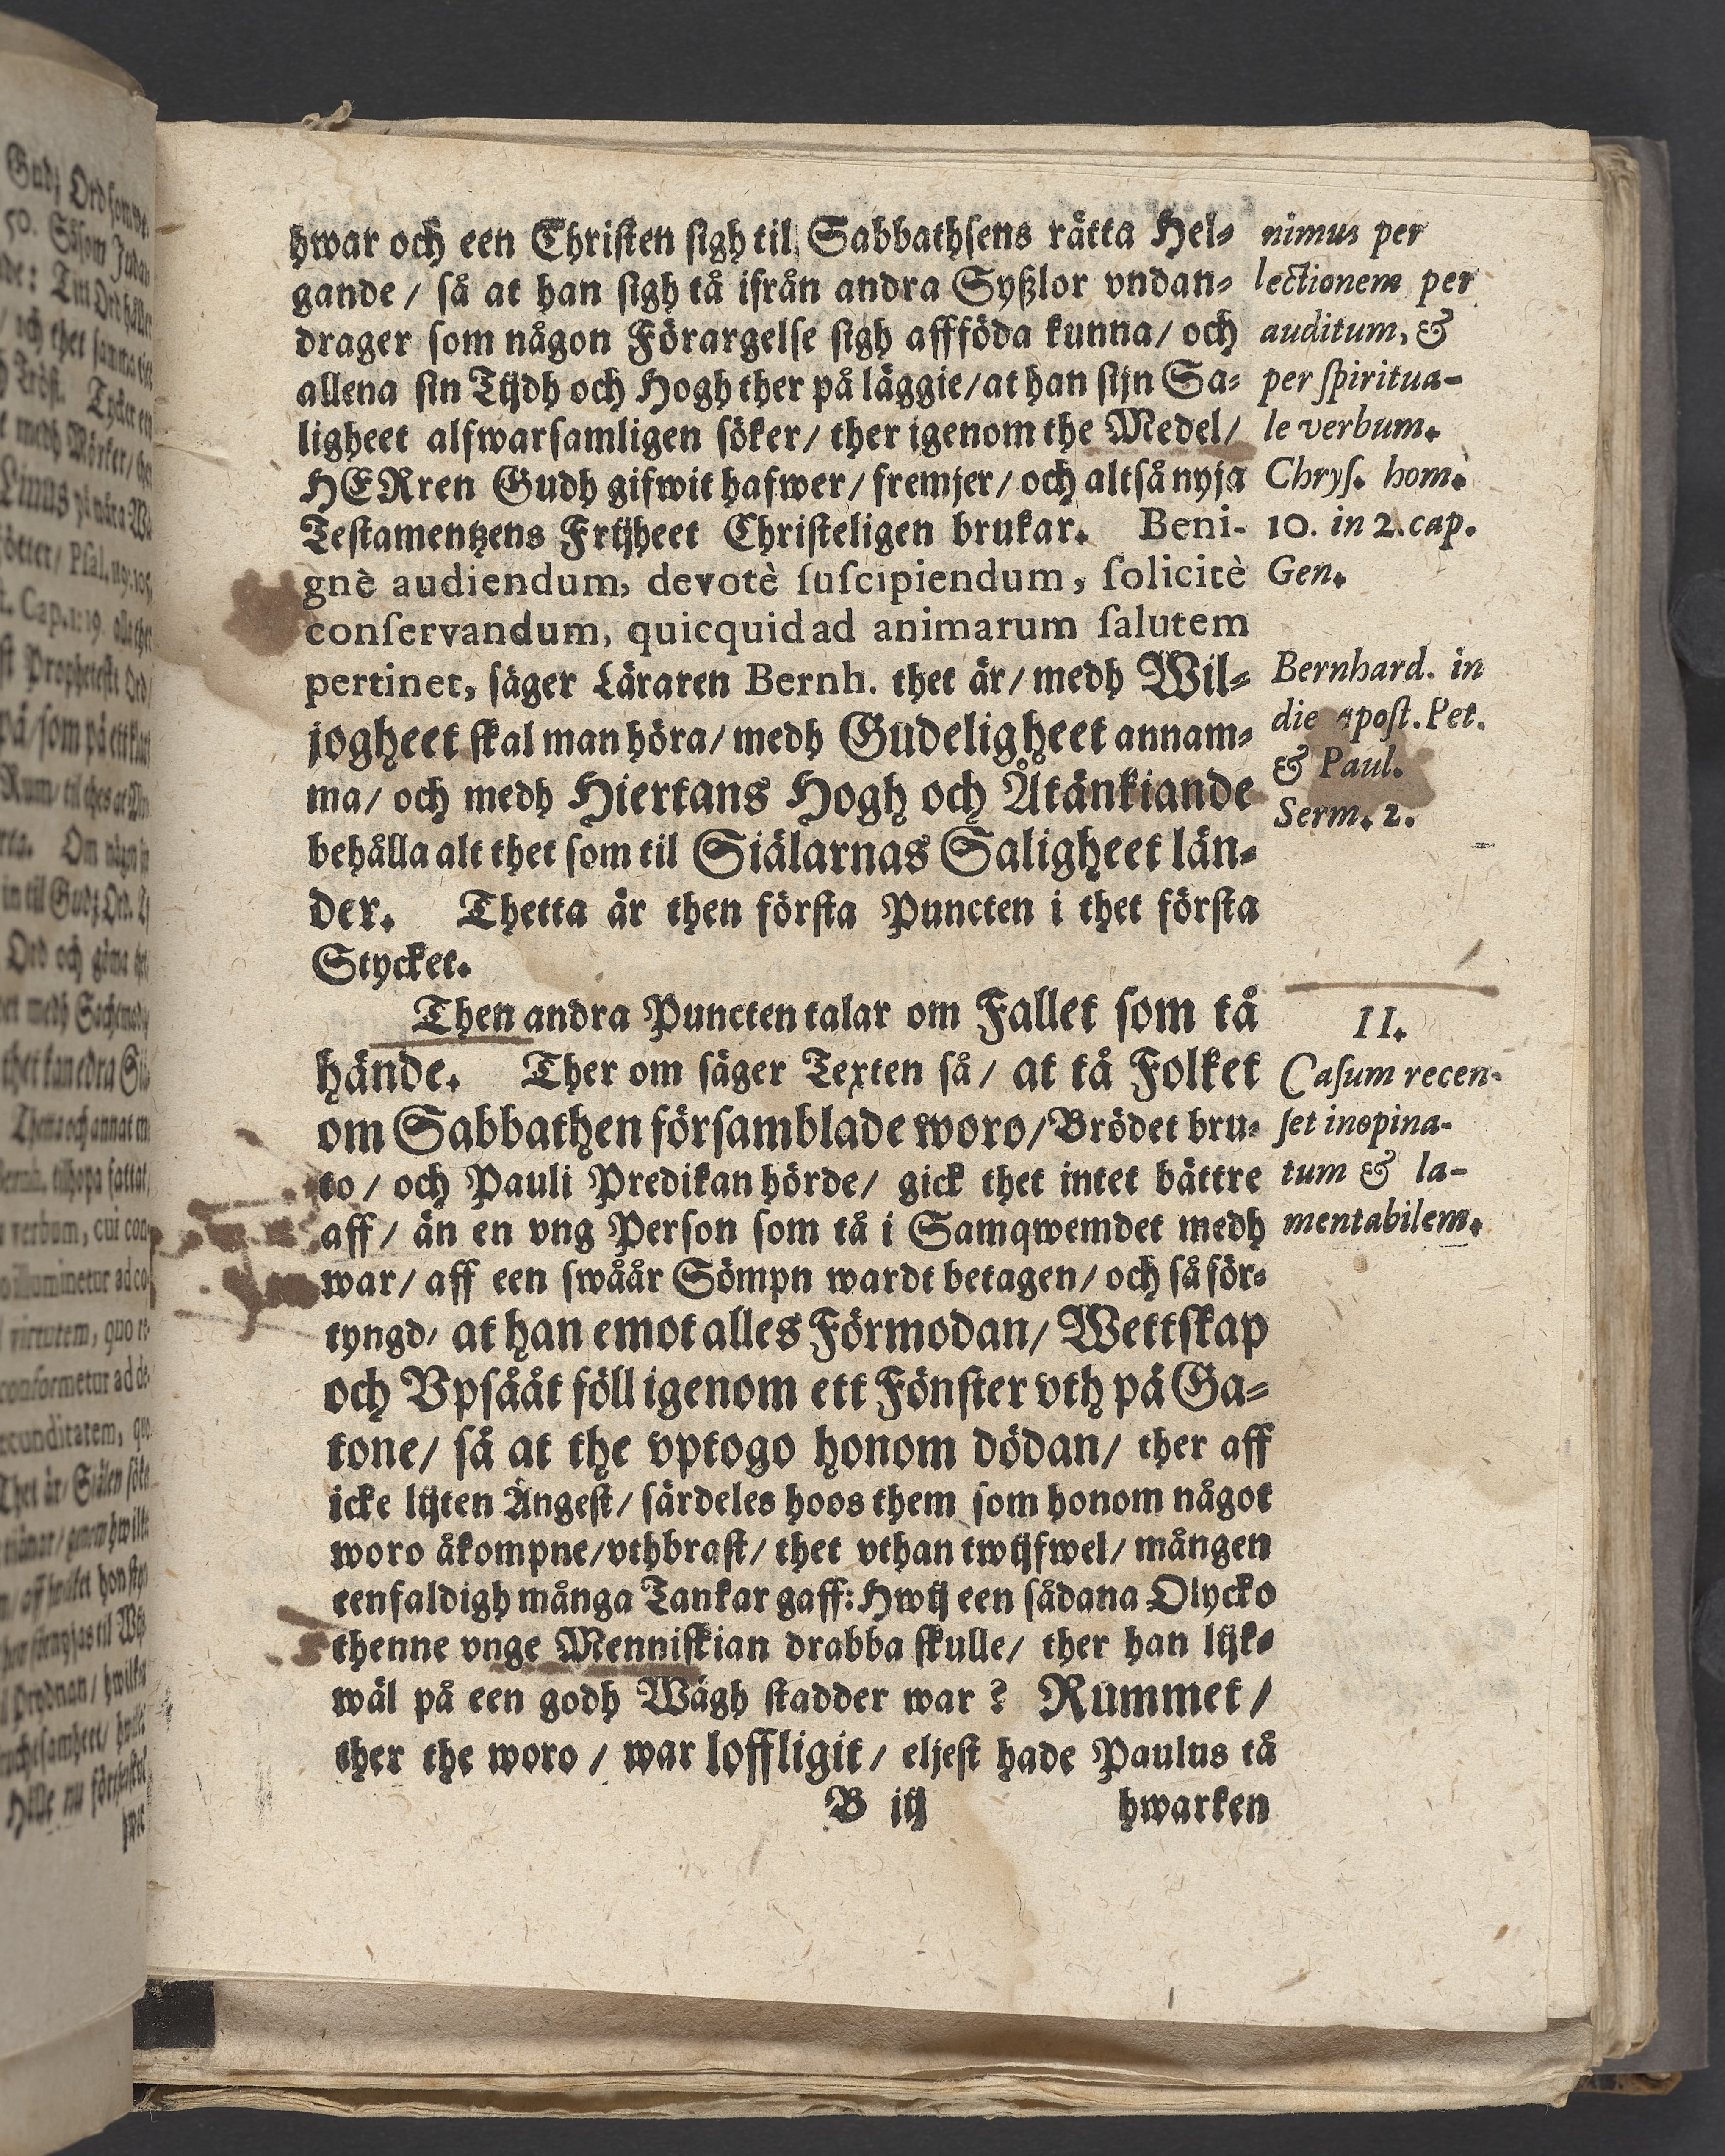 hwar och een Christen sigh til Sabbathsens rätta Hel-
gande / så at han sigh tå ifrån andra Syßlor vndan-
drager som någon Förargelse sigh affföda kunna / och
allena sin Tijdh och Hogh ther på läggie / at han sijn Sa-
ligheet alfwarsamligen söker / ther igenom the Medel /
HERren Gudh gifwit hafwer / fremjer / och altså nyja
Testamentzens Frijheet Christeligen brukar. Beni-
gnè audiendum, devotè suscipiendum, solicitè
conservandum, quicquid ad animarum salutem
pertinet, säger Läraren Bernh. thet är / medh Wil-
jogheet skal man höra / medh Gudeligheet annam-
ma / och medh Hiertans Hogh och Åtänkiande
behålla alt thet som til Siälarnas Saligheet län-
der. Thetta är then första Puncten i thet första
Stycket.
Then andra Puncten talar om Fallet som tå
hände. Ther om säger Texten så / at tå Folket
om Sabbathen församblade woro / Brödet bru-
to / och Pauli Predikan hörde / gick thet intet bättre
aff / än en vng Person som tå i Samqwemdet medh
war / aff een swåår Sömpn wardt betagen / och så för-
tyngd / at han emot alles Förmodan / Wettskap
och Vpsååt föll igenom ett Fönster vth på Ga-
tone / så at the vptogo honom dödan / ther aff
icke lijten Ångest / särdeles hoos them som honom något
woro åkompne / vthbrast / thet vthan twijfwel / mången
eenfaldigh många Tankar gaff: Hwij een sådana Olycko
thenne vnge Menniskian drabba skulle / ther han lijk-
wäl på een godh Wägh stadder war ? Rummet /
ther the woro / war loffligit / eljest hade Paulus tå
B iij hwarken
nimus per
lectionem per
auditum, &
per spiritua-
le verbum.
Chrys. hom.
10. in 2. cap.
Gen.
Bernhard. in
die apost. Pet.
& Paul.
Serm. 2.
II.
Casum recen-
set inopina-
tum & la-
mentabilem.